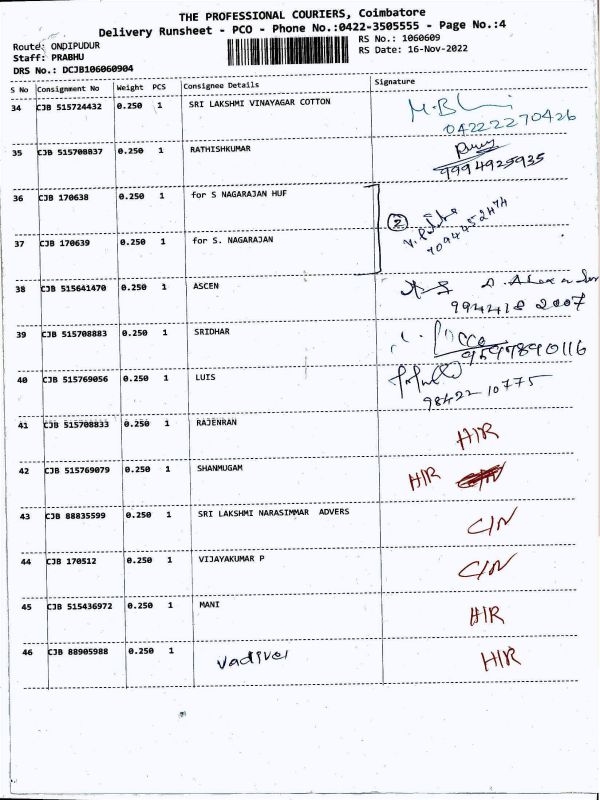 THE PROFESSIONAL COURIERS, Coimbatore
Delivery Runsheet - PCO - Phone No.:0422-3505555 - Page No.:4
Route: ONDIPUDUR RS No.: 1060609
Staff: PRABHU RS Date: 16-Nov-2022
DRS No.: DCJB106060904
S No Consignment No Weight PCS Consignee Details Signature
34 CJB 515724432 0.250 1 SRI LAKSHMI VINAYAGAR COTTON
04222270426
35 CJB 515708837 0.250 1 RATHISHKUMAR
9994925935
36 CJB 170638 0.250 1 for S NAGARAJAN HUF
2
37 CJB 170639 0.250 1 for S. NAGARAJAN
38 CJB 515641470 0.250 1 ASCEN
994418 2007
39 CJB 515708883 0.250 1 SRIDHAR
9597890116
40 CJB 515769056 0.250 1 LUIS
98422 10775
41 CJB 515708833 0.250 1 RAJENRAN H/R
42 CJB 515769079 0.250 1 SHANMUGAM H/R
43 CJB 88835599 0.250 1 SRI LAKSHMI NARASIMMAR ADVERS C/N
44 CJB 170512 0.250 1 VIJAYAKUMAR P C/N
45 CJB 515436972 0.250 1 MANI H/R
46 CJB 88905988 0.250 1 Vadivel H/R